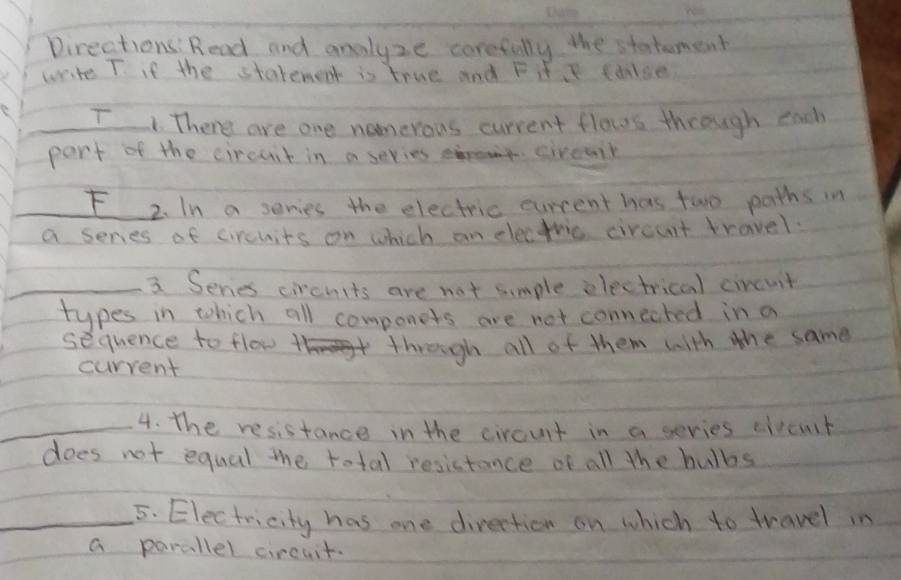 Directions: Read and analyze carefully the statement
write T if the statement is true and F if
T 1. There are one numerous current flows through each
part of the circuit in a series circuit
F 2. In a series the electric current has two paths in
a series of circuits on which an electric circuit travel.
3. Series circuits are not simple electrical circuit
types in which all componets are not connected in a
sequence to flow through all of them with the same
current
4. The resistance in the circuit in a series circuit
does not equal the total resistance of all the bulbs
5. Electricity has one direction on which to travel in
a parallel circuit.